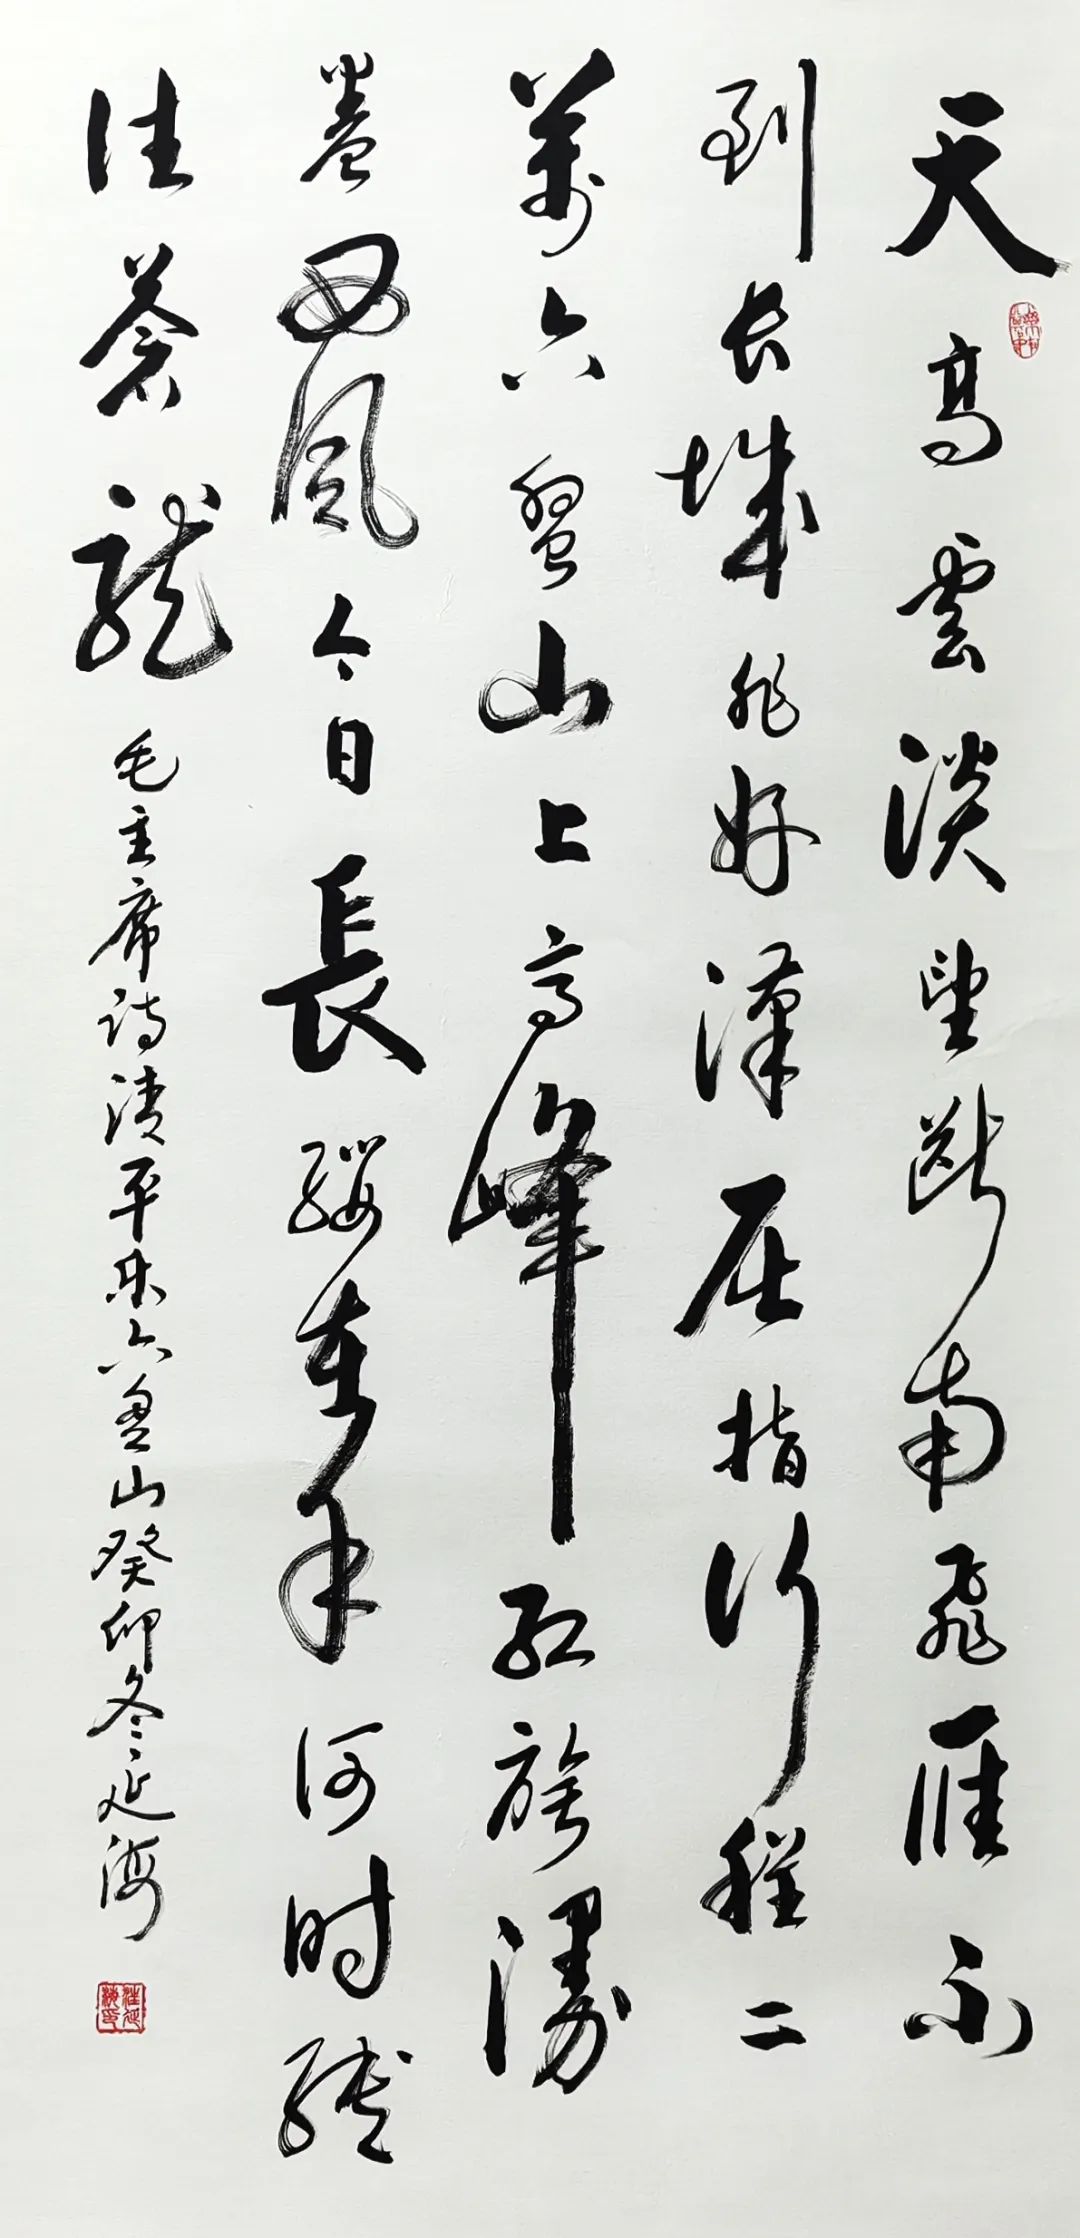 天高雲淡望断南飛雁不
到长城非好漢屈指行程二
萬六盤山上高峰红旗漫
卷西風今日長缨在手何时缚
住蒼龙
毛主席诗清平乐六盘山癸卯冬延海